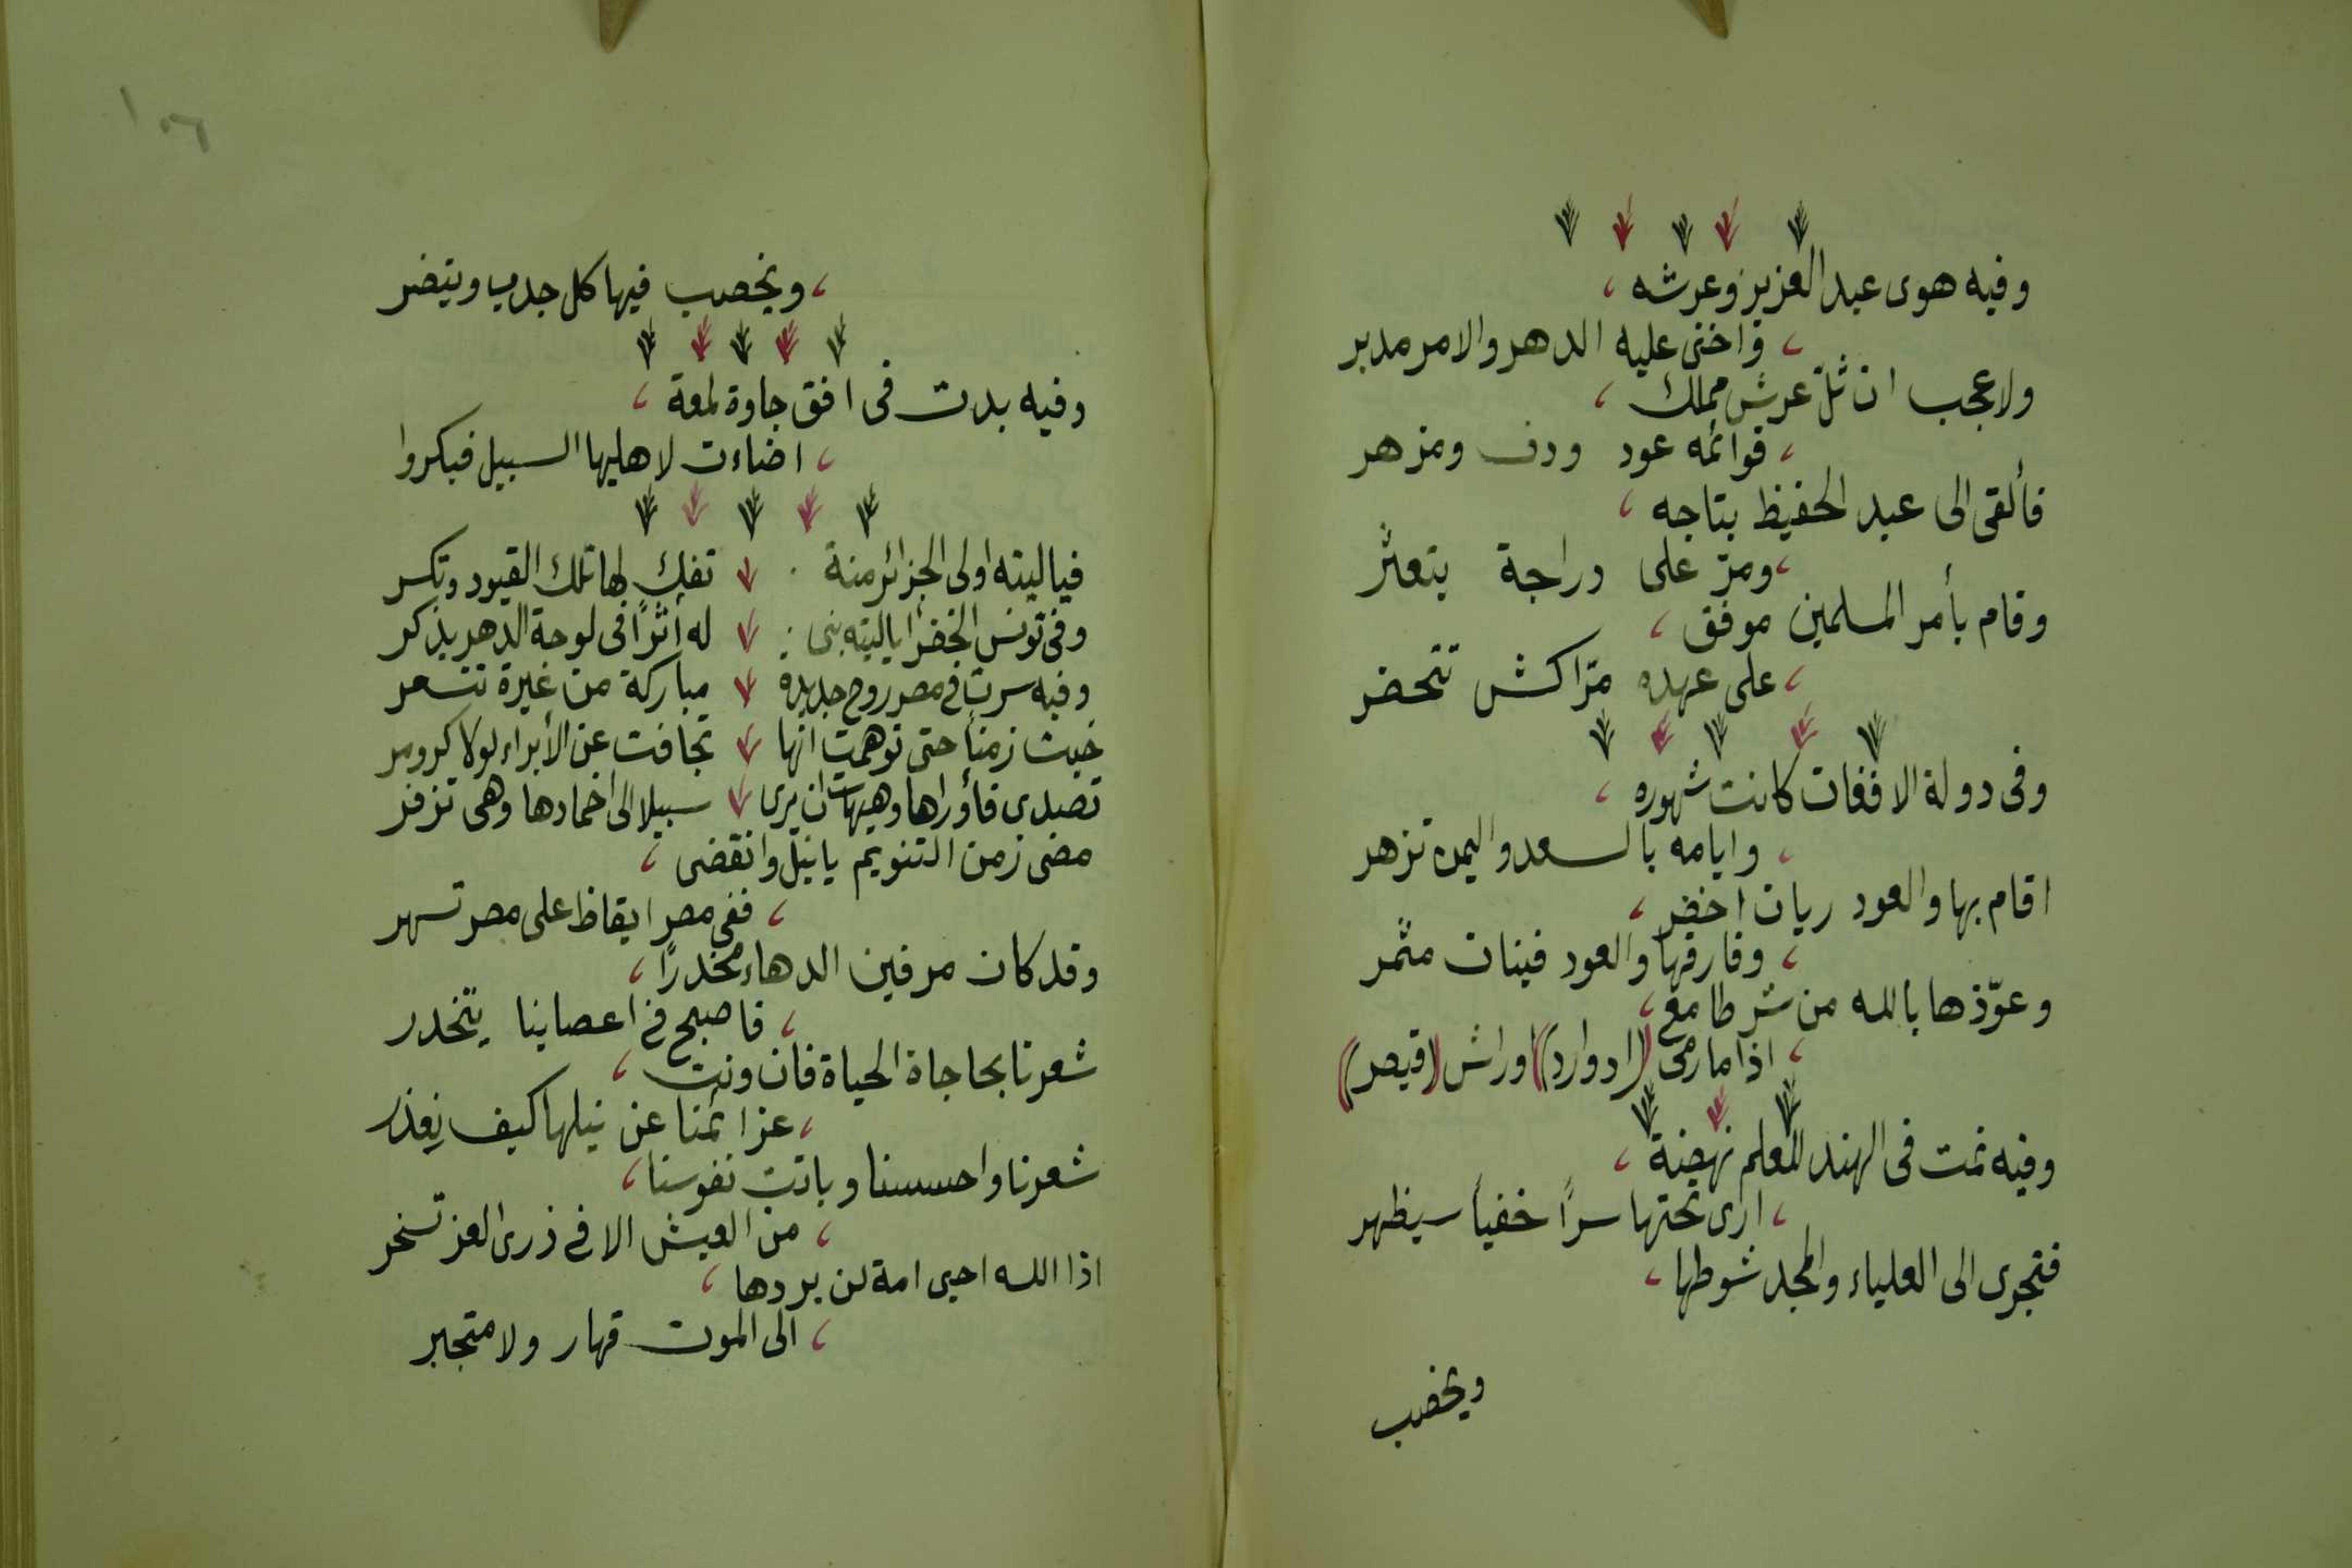 وفيه هوى عبد العزيز وعرشه ،
، واخنى عليه الدهر والامر مدبر
ولا عجب ان ثلّ عرش مملك ،
، قوائمه عود ودف ومزهر
فألقى الى عبد الحفيظ بتاجه ،
، ومرّ على دراجة يتعثّر
وقام بأمر المسلمين موفق ،
، على عهده مرّاكش تتحضر
وفى دولة الافغان كانت شهوره ،
، وايامه بالسعد واليمن تزهر
اقام بها والعود ريان اخضر ،
، وفارقها والعود فينان مثمر
وعوّذها بالله من شر طامع ،
، اذا ما رمى (ادوارد) اوراش (قيصر)
وفيه نمت فى الهند للعلم نهضة ،
، ارى تحتها سراً خفياً سيظهر
فتجرى الى العلياء والمجد شوطها ،
ويخصب
١٠٦
، ويخصب فيها كل جدب وينضر
وفيه بدت فى افق جاوة لمعة ،
، اضاءت لاهليها السبيل فبكروا
فيا ليته اولى الجزائر منة تفك لها تلك القيود وتكسر
وفى تونس الخضرا يا ليته بنى له أثراً فى لوحة الدهر يذكر
وفيه سرت فى مصر روح جديدة مباركة من غيرة تتسعر
خبت زمناً حتى توهمت انها تجافت عن الأبراء لولا كرومر
تصدى فأوراها وهيهات ان يرى سبيلا الى اخمادها وهى تزفر
مضى زمن التنويم يا نيل وانقضى ،
، ففى مصر ايقاظ على مصر تسهر
وقد كان مرفين الدهاء مخدراً ،
، فاصبح فى اعصابنا يتخدر
شعرنا بحاجاة الحياة فان ونت ،
، عزائمنا عن نيلها كيف نعذر
شعرنا واحسسنا وباتت نفوسنا ،
، من العيش الا فى ذرى العز تسخر
اذا الله احيى امة لن يردها ،
، الى الموت قهار ولا متجبر